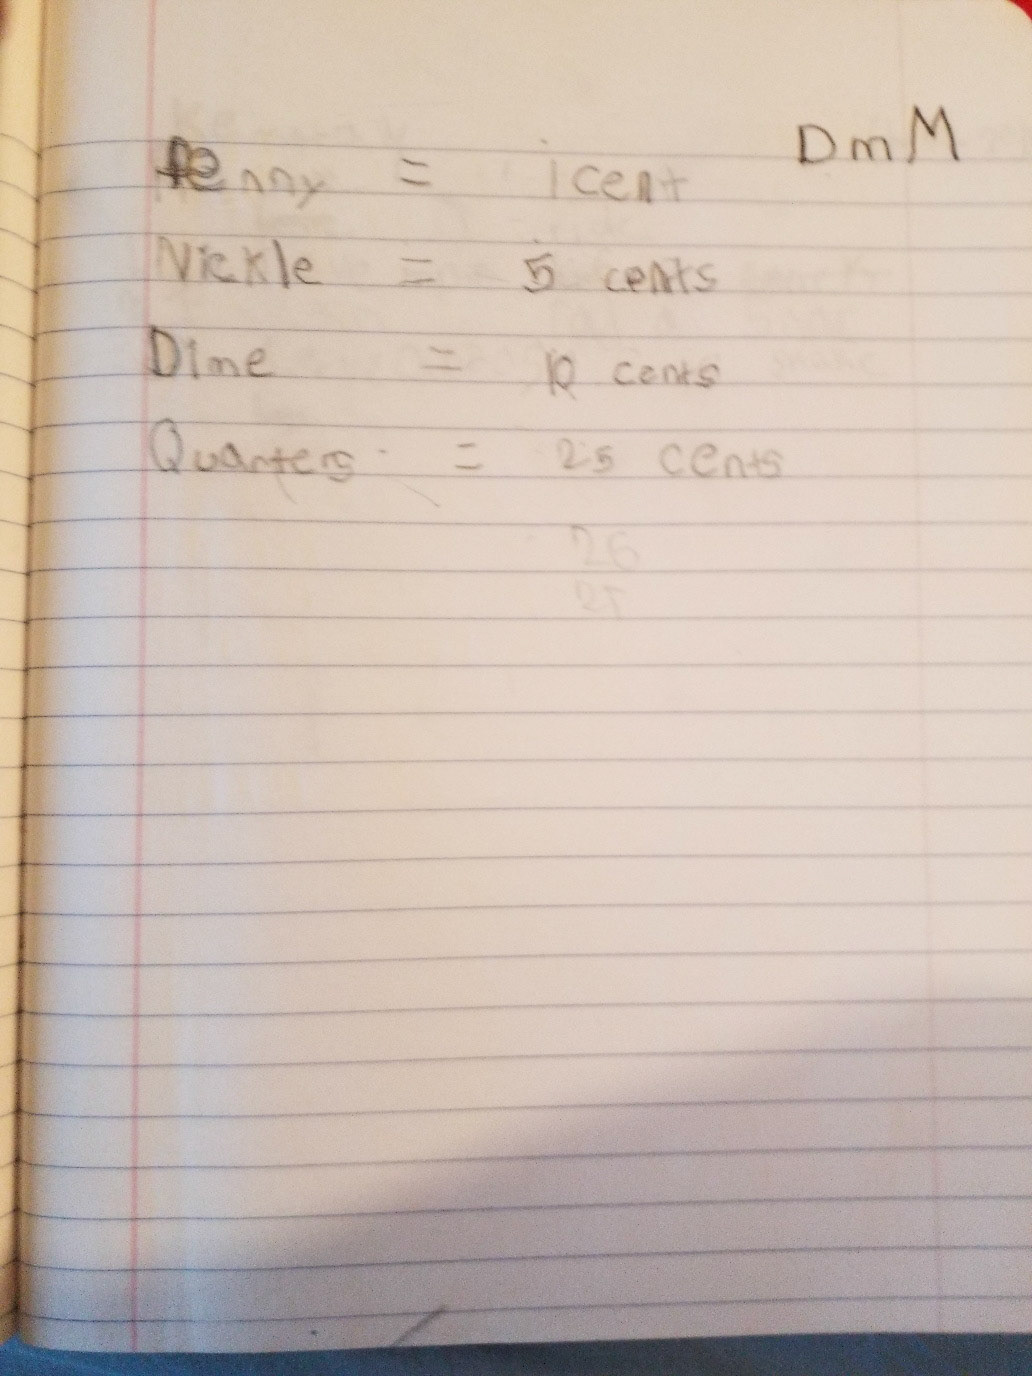 DmM
Penny = 1 cent
Nickle = 5 cents
Dime = 10 cents
Quarters = 25 cents
26
25